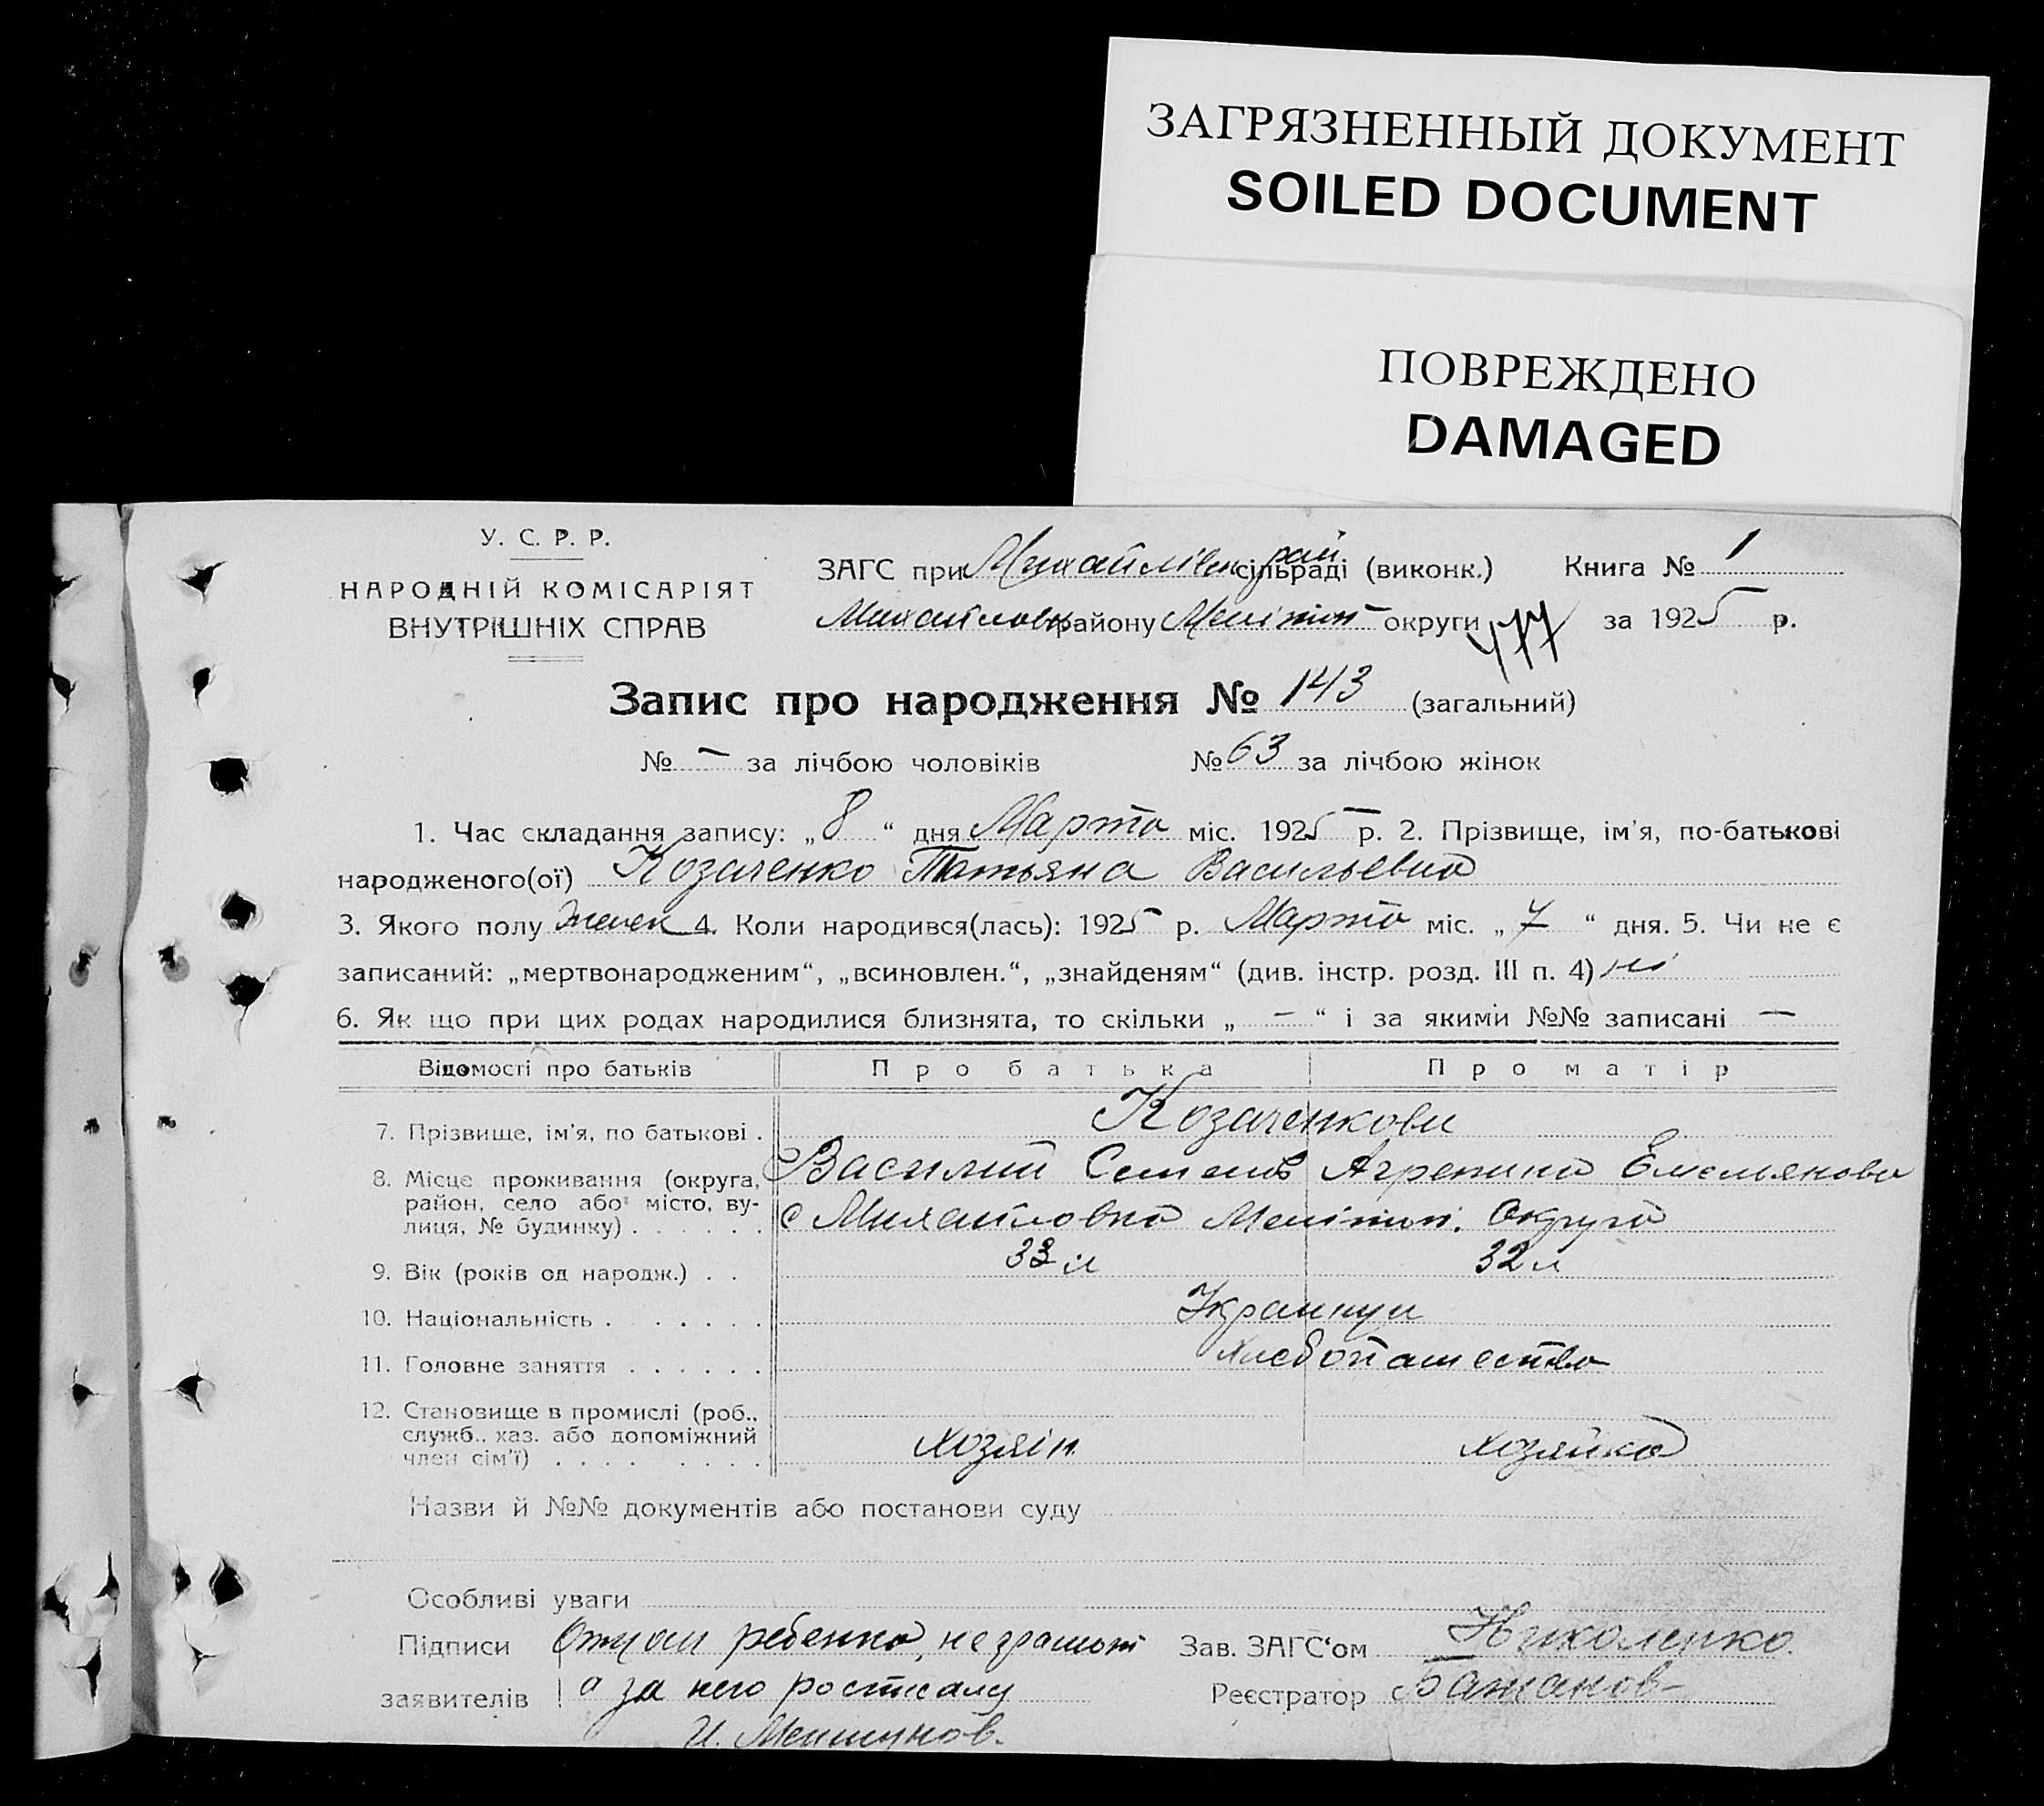 ЗАГРЯЗНЕННЫЙ ДОКУМЕНТ
SOILED DOCUMENT
ПОВРЕЖДЕНО
DAMAGED
У. С. Р. Р.
НАРОДНІЙ КОМІСАРІЯТ
ВНУТРІШНІХ СПРАВ
ЗАГС при Михайлівск рай сільраді (виконк.) Книга № 1
Михайловск району Мелітоп округи 477 за 1925 р.
Запис про народження № 143 (загальний)
№ – за лічбою чоловіків № 63 за лічбою жінок
1. Час складання запису: „ 8 “ дня Марта міс. 1925 р. 2. Прізвище, ім'я, по-батькові
народженого(ої) Козаченко Татьяна Васильевна
3. Якого полу женск 4. Коли народився(лась): 1925 р. Марта міс. „ 7 “ дня. 5. Чи не є
записаний: „мертвонародженим“, „всиновлен.“, „знайденям“ (див. інстр. розд. III п. 4) ні
6. Як що при цих родах народилися близнята, то скільки „ – “ і за якими №№ записані –
Відомості про батьків Про батька Про матір
7. Прізвище, ім'я, по батькові . Козаченкови
8. Місце проживання (округа, Василий Семенов Агрепина Емельянова
район, село або місто, ву-
лиця, № будинку) . . . . . . с Михайловка Мелітоп. Округа
9. Вік (років од народж.) . . 33 л 32 л
10. Національність . . . . . . . Украинци
11. Головне заняття . . . . . . Хлебопашество
12. Становище в промислі (роб.,
служб., хаз. або допоміжний хозяін хозяйка
член сім'ї) . . . . . . . .
Назви й №№ документів або постанови суду
Особливі уваги
Підписи Отец ребенка, неграмот Зав. ЗАГС'ом Николенко.
заявителів а за него росписалу Реєстратор Бажанов
И.